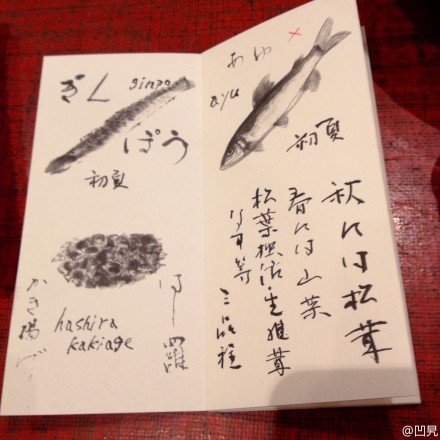 ぎん ginpo
ぽう
初夏
はし羅
かき揚げ
hashira
kakiage
あゆ
ayu
初夏
秋には松茸
春には山菜
生椎茸
三品程